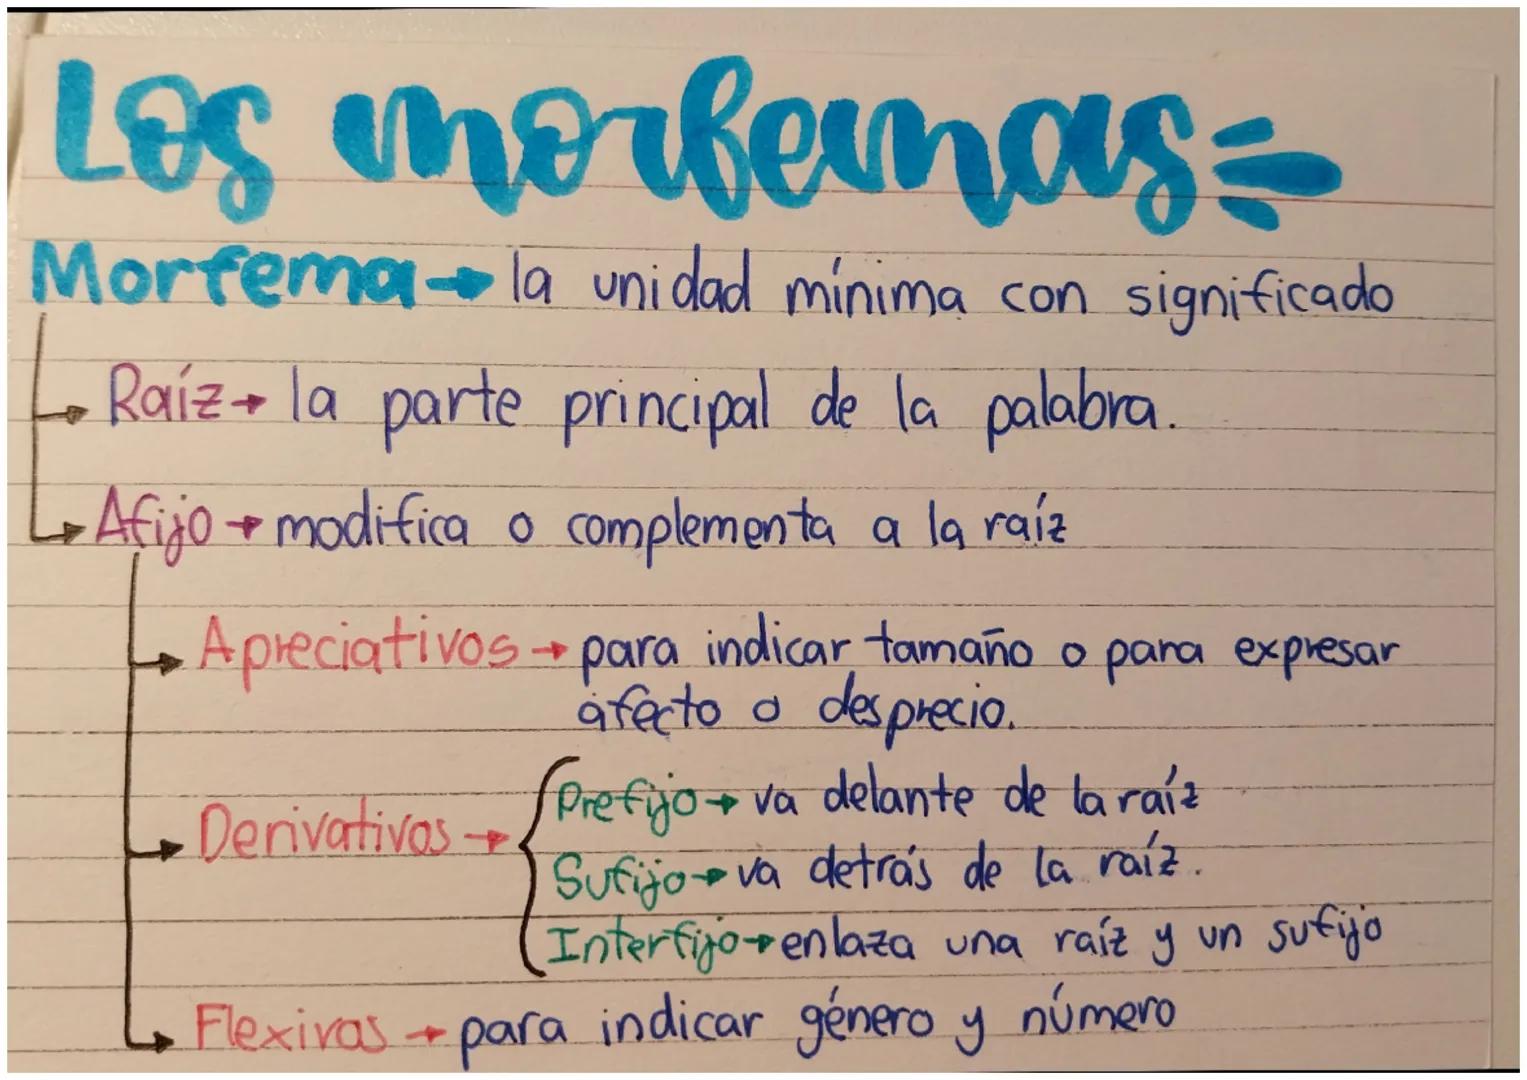 Los morfemas
Morfema → la unidad mínima con significado
Raíz → la parte principal de la palabra.
Afijo → modifica o complementa a la raíz
Apreciativos → para indicar tamaño o para expresar
afecto o desprecio.
Derivativos →
Prefijo → va delante de la raíz
Sufijo → va detrás de la raíz.
Interfijo → enlaza una raíz y un sufijo
Flexivas → para indicar género y número